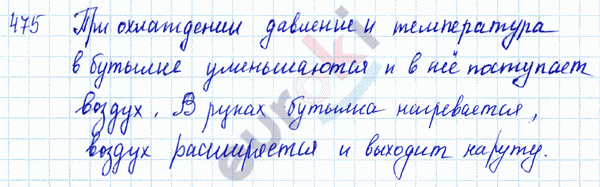 475 При охлаждении давление и температура
в бутылке уменьшаются и в неё поступает
воздух. В руках бутылка нагревается,
воздух расширяется и выходит наружу.